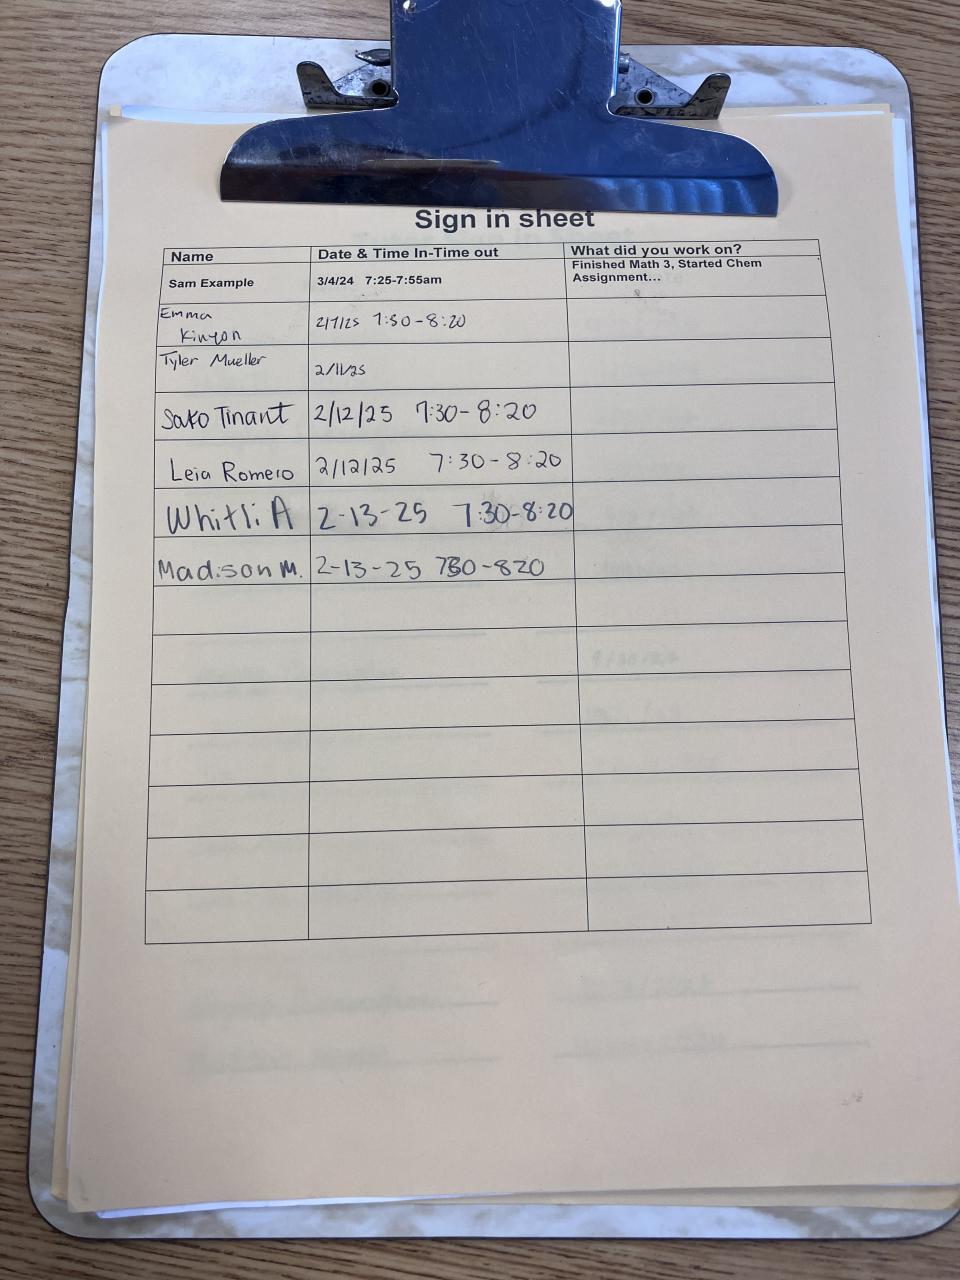 Sign in sheet
Name Date & Time In-Time out What did you work on?
Sam Example 3/4/24 7:25-7:55am Finished Math 3, Started Chem
Assignment...
Emma
Kinyon 2/7/25 7:30-8:20
Tyler Mueller 2/11/25
Sako Tinant 2/12/25 7:30-8:20
Leia Romero 2/12/25 7:30-8:20
Whitli A 2-13-25 7:30-8:20
Madison M. 2-13-25 730-820